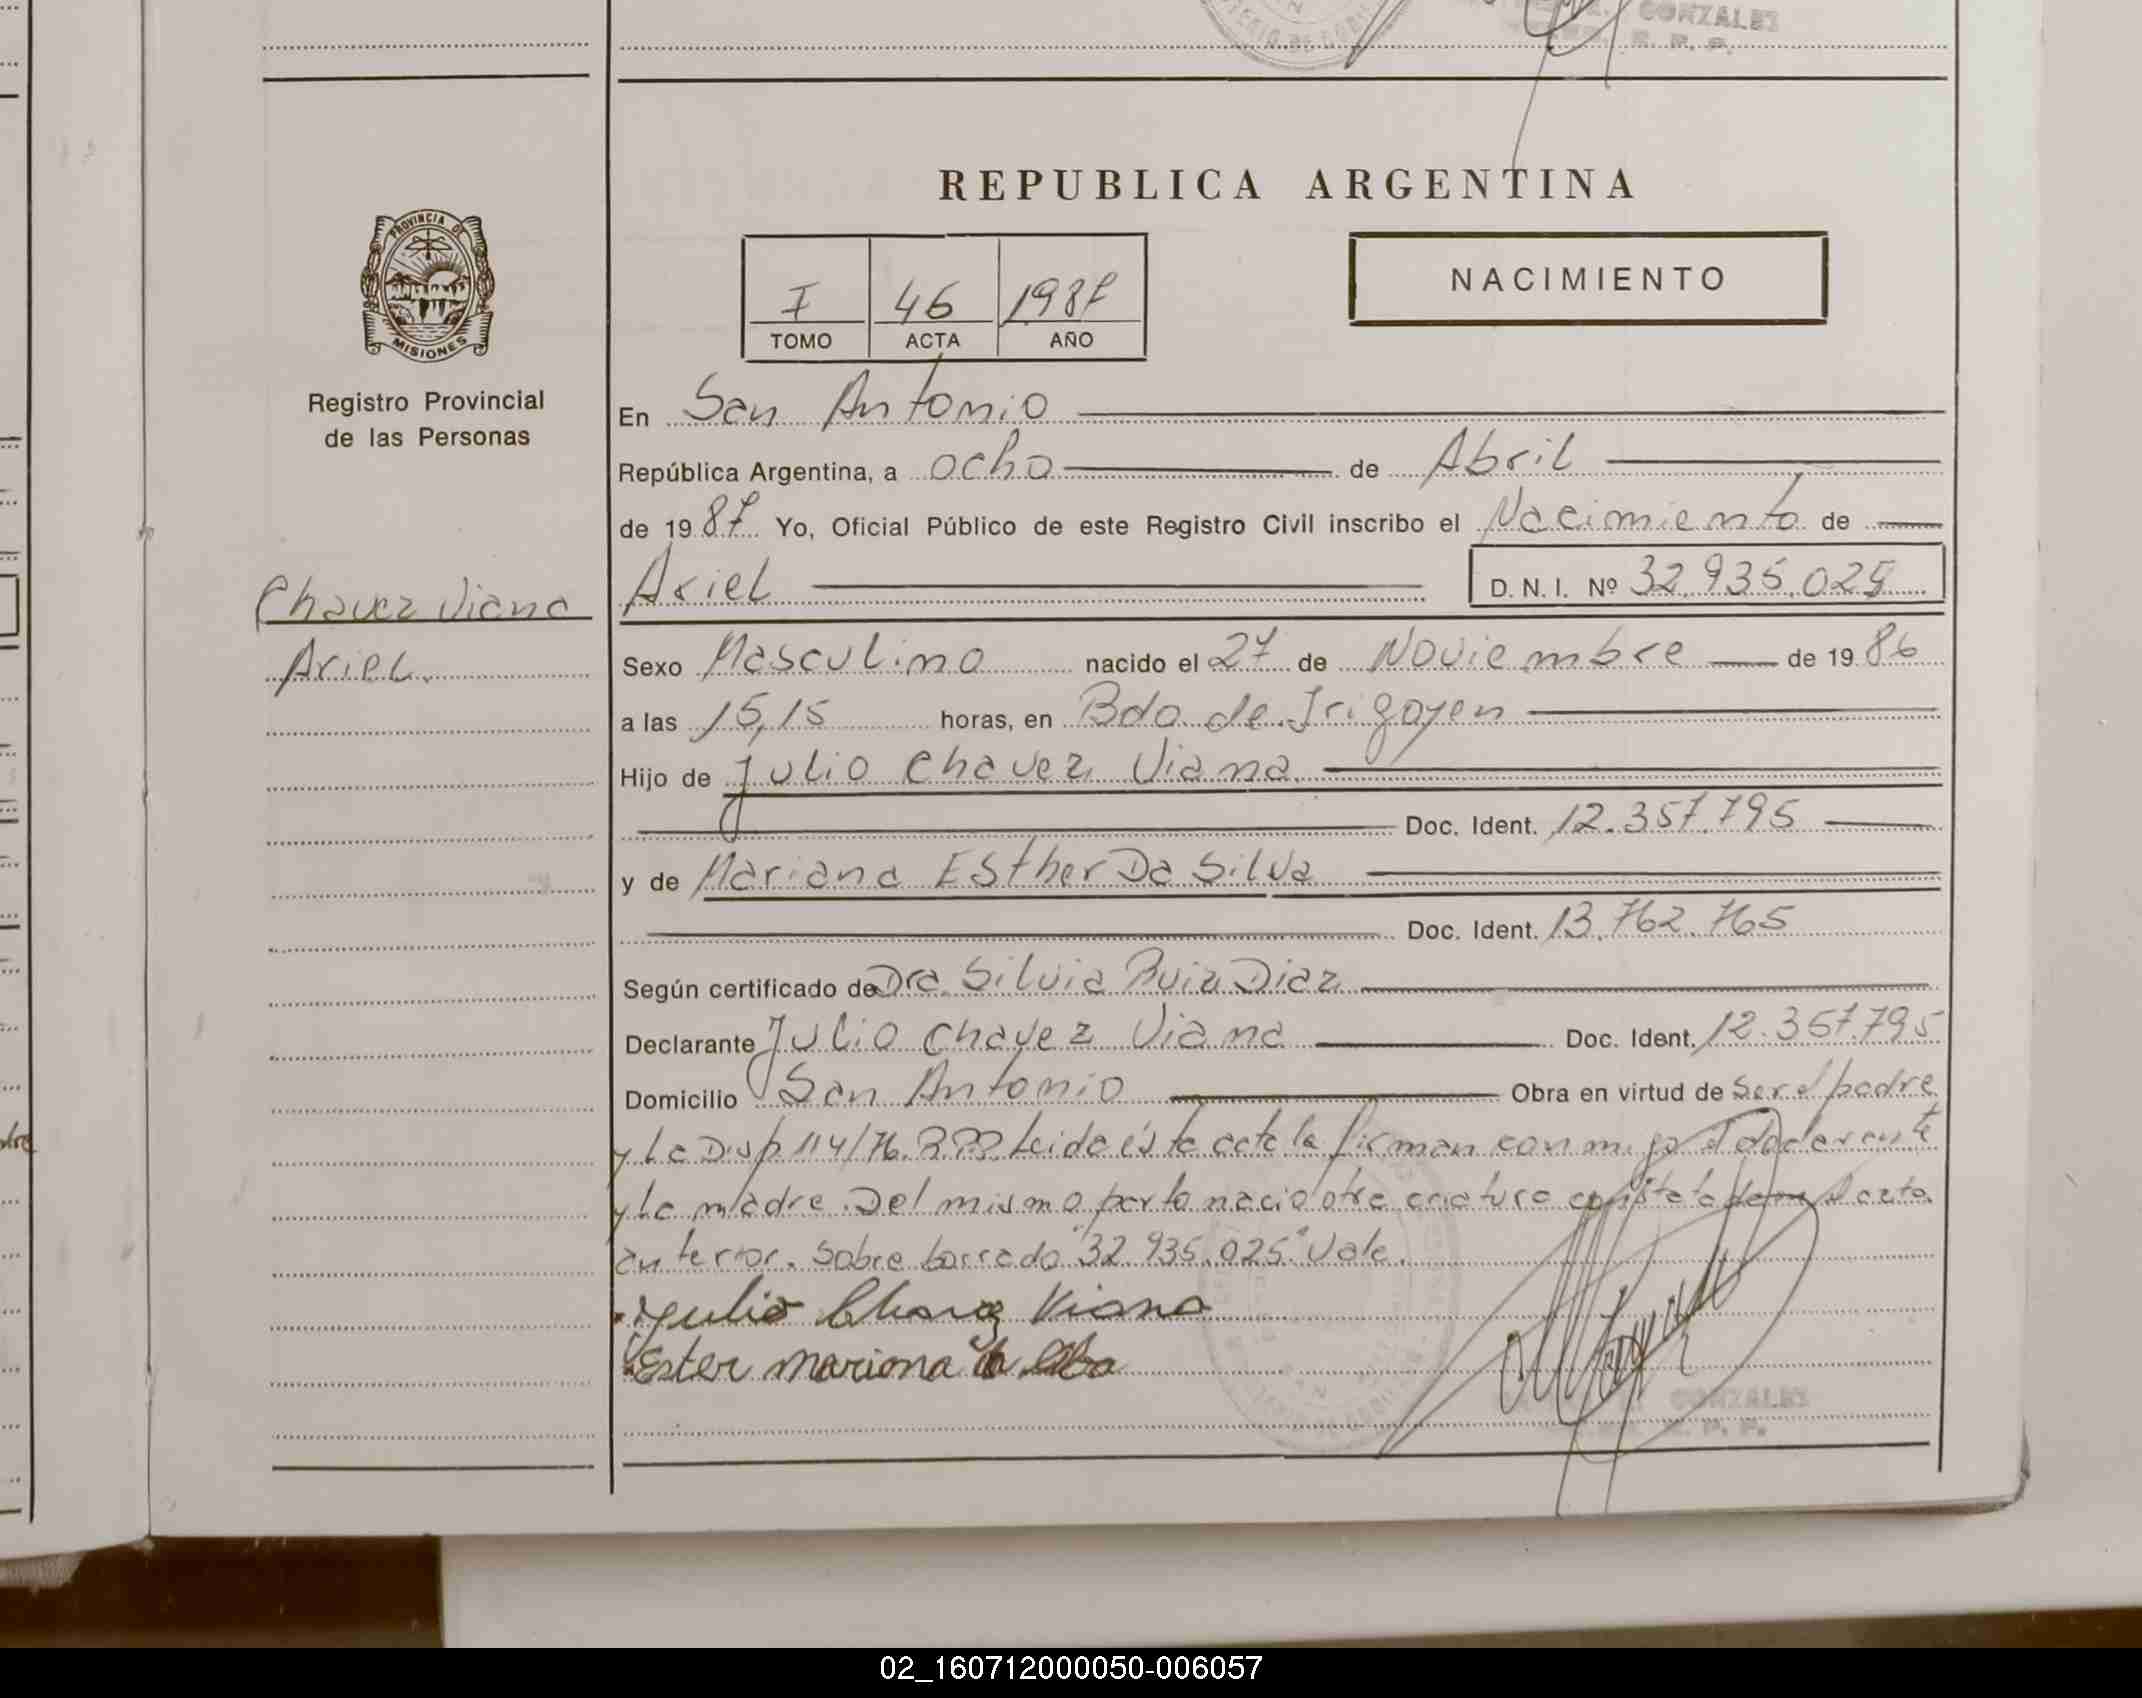 GONZALEZ
R. P. P.
REPUBLICA ARGENTINA
PROVINCIA DE
MISIONES
Registro Provincial
de las Personas
I 46 1987
TOMO ACTA AÑO
NACIMIENTO
Chavez Viana
Ariel.
En San Antonio
República Argentina, a ocho de Abril
de 1987 Yo, Oficial Público de este Registro Civil inscribo el Nacimiento de
Ariel D. N. I. Nº 32.935.025
Sexo Masculino nacido el 27 de Noviembre de 1986
a las 15,15 horas, en Bdo de Irigoyen
Hijo de Julio Chavez Viana
Doc. Ident. 12.357.795
y de Mariana Esther Da Silva
Doc. Ident. 13.762.765
Según certificado de Dra. Silvia Ruiz Diaz
Declarante Julio Chavez Viana Doc. Ident. 12.357.795
Domicilio San Antonio Obra en virtud de ser el padre
y La Disp 114/76. R.P.P. Leida ésta acta la firman conmigo el declarante
y La madre. Del mismo parto nacio otra criatura acta
anterior. Sobre borrado "32.935.025" Vale.
Julio Chavez Viana
Ester Mariana
GONZALEZ
R. P. P.
02_160712000050-006057